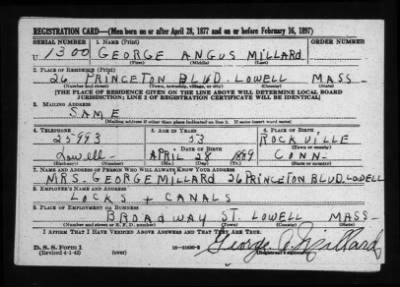 REGISTRATION CARD—(Men born on or after April 28, 1877 and on or before February 16, 1897)
SERIAL NUMBER 1. NAME (Print) ORDER NUMBER
U 1300 GEORGE ANGUS MILLARD
(First) (Middle) (Last)
2. PLACE OF RESIDENCE (Print)
26 PRINCETON BLVD. LOWELL MASS-
(Number and street) (Town, township, village, or city) (County) (State)
[THE PLACE OF RESIDENCE GIVEN ON THE LINE ABOVE WILL DETERMINE LOCAL BOARD
JURISDICTION; LINE 2 OF REGISTRATION CERTIFICATE WILL BE IDENTICAL]
3. MAILING ADDRESS
SAME
[Mailing address if other than place indicated on line 2. If same insert word same]
4. TELEPHONE 5. AGE IN YEARS 6. PLACE OF BIRTH
25993 53 ROCKVILLE
DATE OF BIRTH (Town or county)
Lowell APRIL 28 1889 CONN-
(Exchange) (Number) (Mo.) (Day) (Yr.) (State or country)
7. NAME AND ADDRESS OF PERSON WHO WILL ALWAYS KNOW YOUR ADDRESS
MRS. GEORGE MILLARD 26 PRINCETON BLVD. LOWELL
8. EMPLOYER'S NAME AND ADDRESS
LOCKS + CANALS
9. PLACE OF EMPLOYMENT OR BUSINESS
BROADWAY ST. LOWELL MASS-
(Number and street or R. F. D. number) (Town) (County) (State)
I AFFIRM THAT I HAVE VERIFIED ABOVE ANSWERS AND THAT THEY ARE TRUE.
D. S. S. Form 1
(Revised 4-1-42) (over)
George A. Millard
(Registrant's signature)